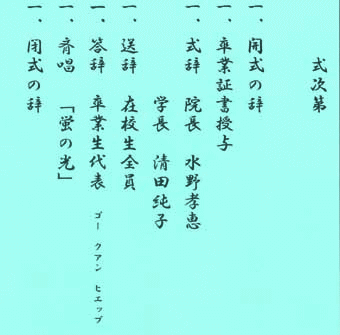 式次第
一、開式の辞
一、卒業証書授与
一、式辞　院長　水野孝恵
学長　清田純子
一、送辞　在校生全員
一、答辞　卒業生代表　ゴー　クアン　ヒエップ
一、斉唱　「蛍の光」
一、閉式の辞